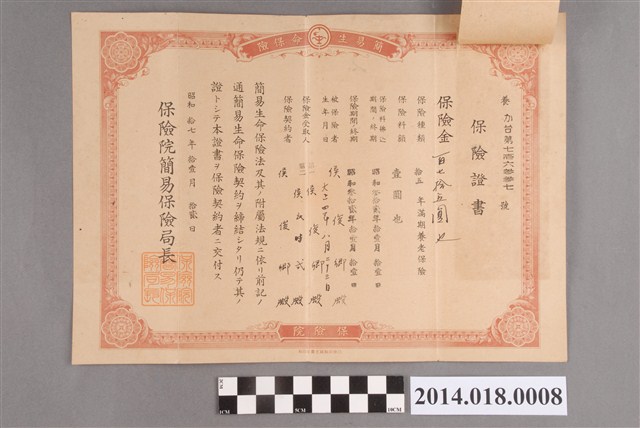 簡易生命保險
保險證書
保險金 一百七拾五圓也
保險種類 拾五年滿期養老保險
保險料額 壹圓也
保險料拂込期間ノ終期
保險期間ノ終期
被保險者 侯俊卿殿
生年月日
保險金受取人
第一 侯俊卿殿
第二
保險契約者 侯俊卿殿
簡易生命保險法及其ノ附屬法規ニ依リ前記ノ
通簡易生命保險契約ヲ締結シタリ仍テ其ノ
證トシテ本證書ヲ保險契約者ニ交付ス
昭和拾七年拾壹月拾貳日
保險院簡易保險局長
保險院
1CM
5CM
10CM
2014.018.0008